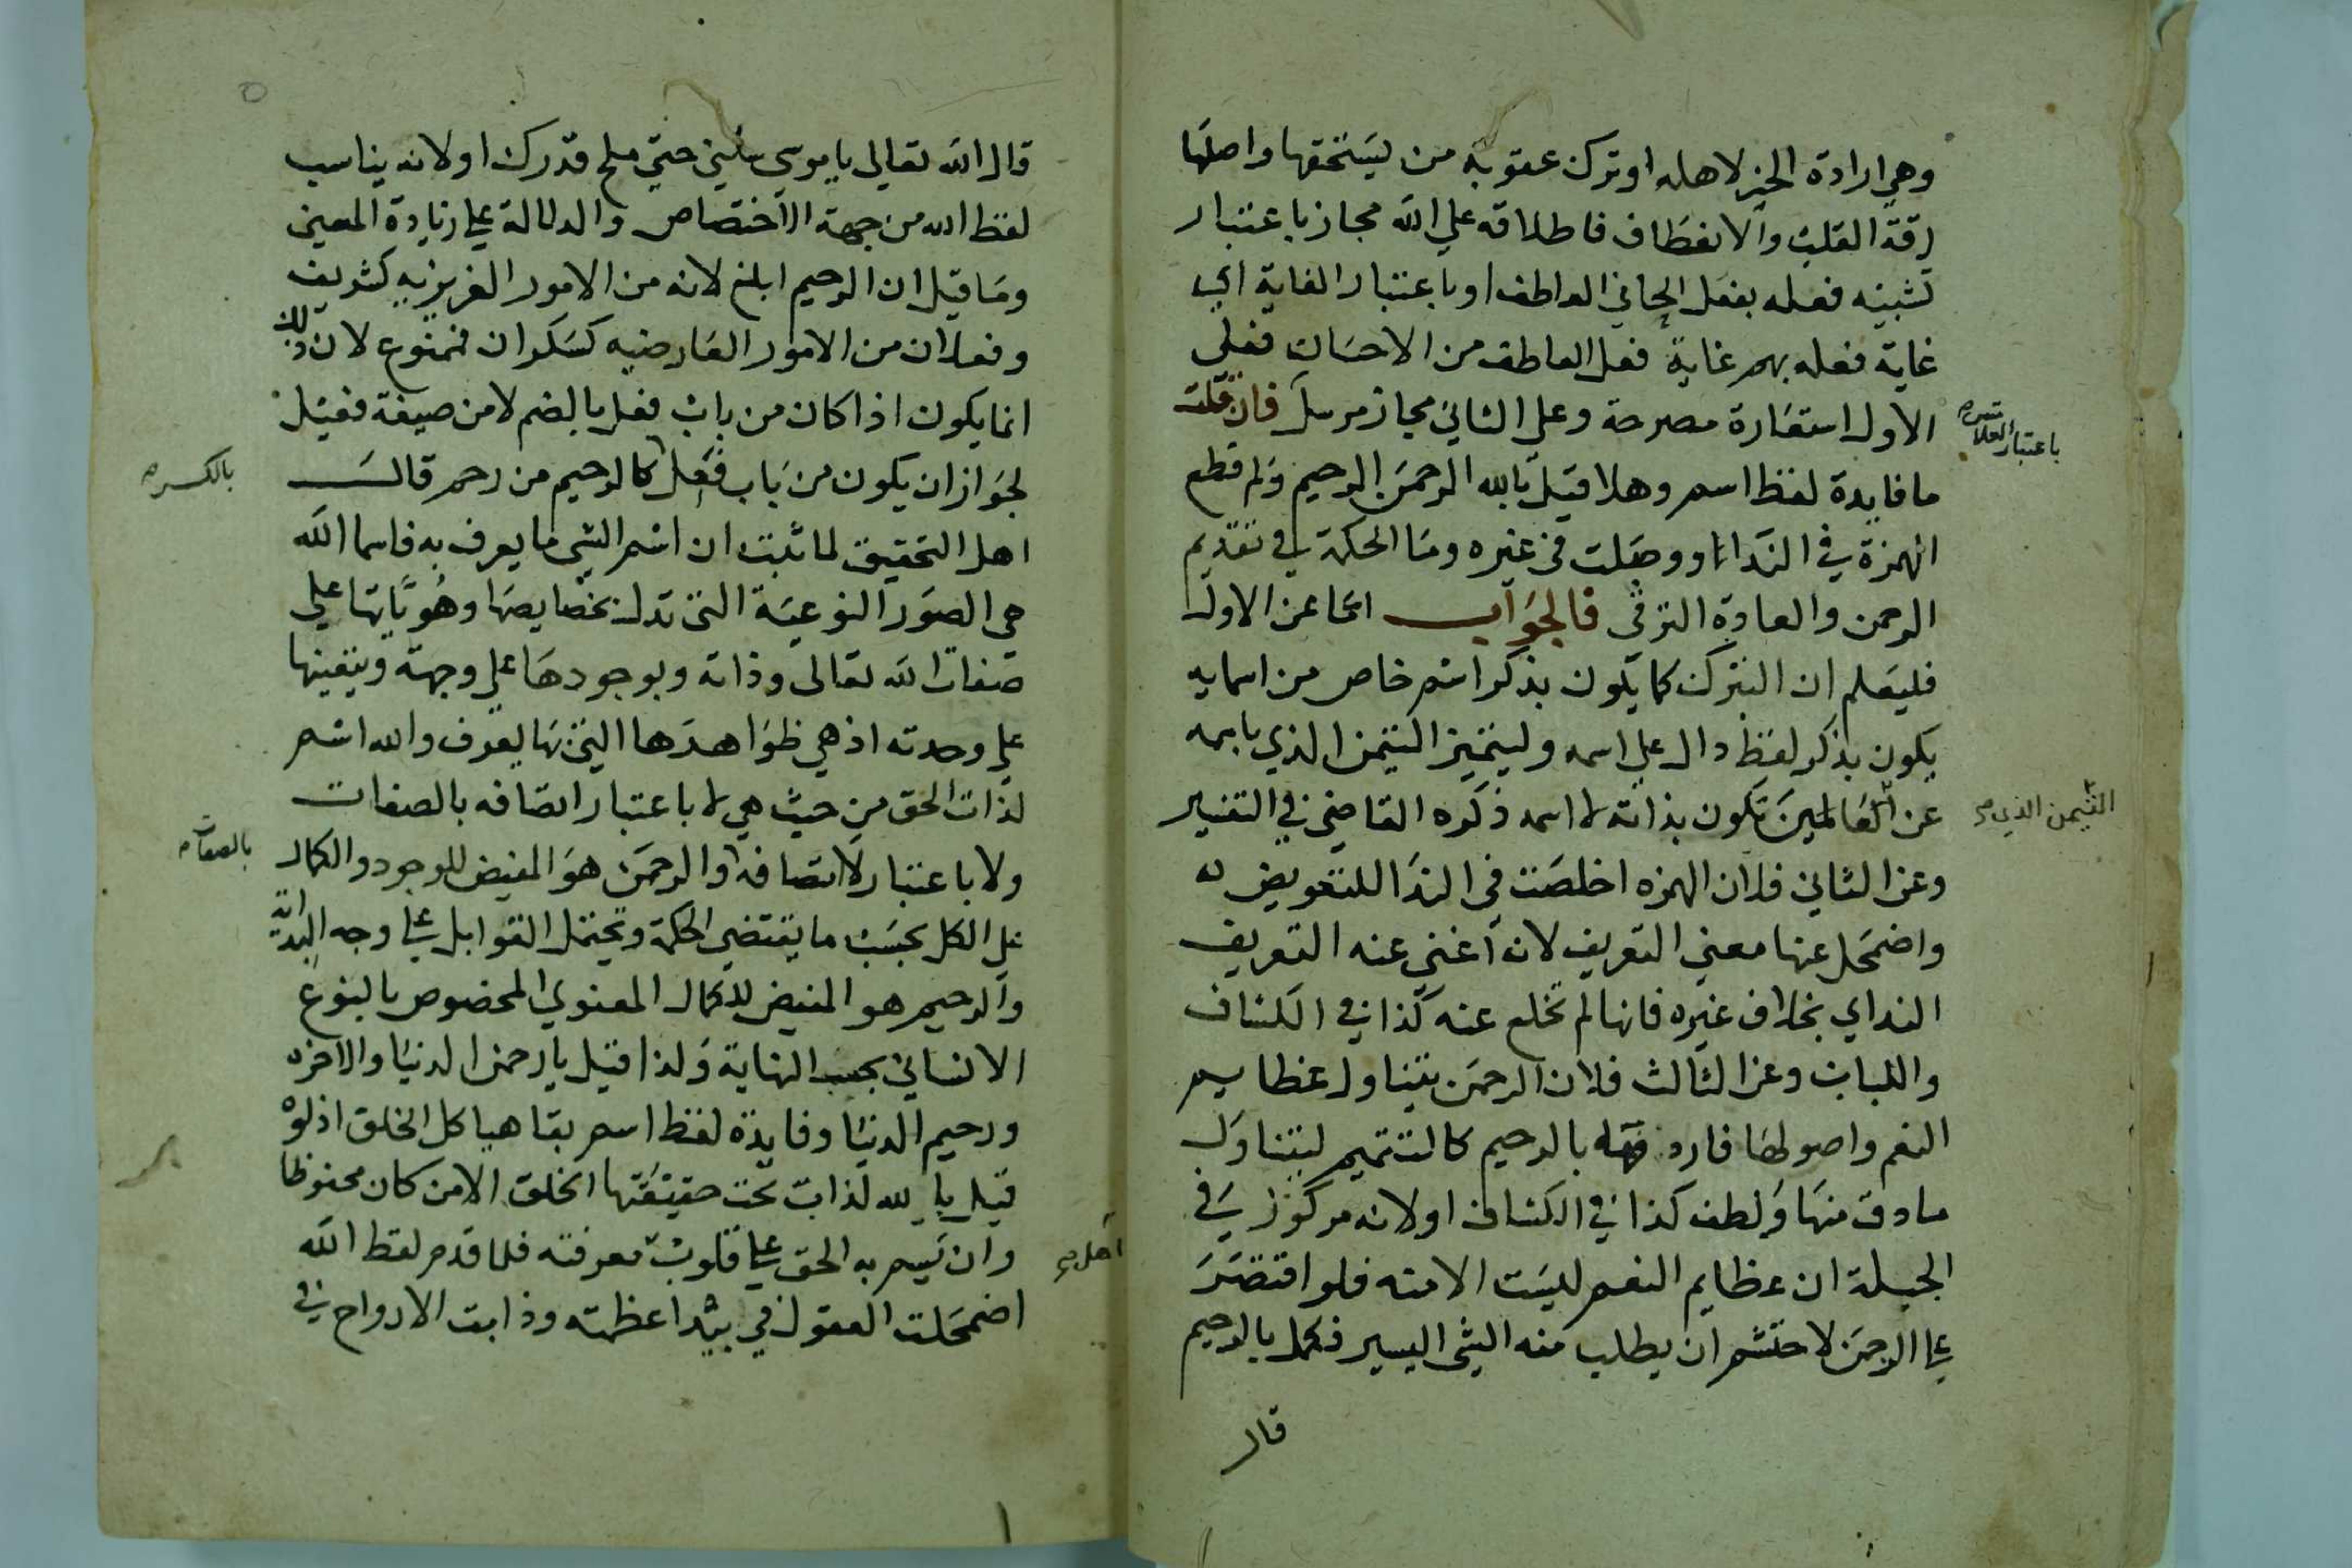 وهي ارادة الخير لاهله او ترك عقوبة من يستحقها واصلها
رقة القلب والانعطاف فاطلاقه علي الله مجاز باعتبار
تشبيه فعله بفعل الحاني العاطف او باعتبار الغاية اي
غاية فعله بهم غاية فعل العاطف من الاحسان فعلي
الاول استعارة مصرحة وعلي الثاني مجاز مرسل فان قلت
باعتبار العلا
ما فايدة لفظ اسم وهلا قيل بالله الرحمن الرحيم ولم قطع
الهمزة في الندا ووصلت في غيره وما الحكمة في تقديم
الرحمن والعادة الترقي فالجواب اما عن الاول
فليعلم ان التبرك كما يكون بذكر اسم خاص من اسمايه
يكون بذكر لفظ دال علي اسمه وليتميز التيمن الذي باسمه
عن العالمين تكون بذاته لا اسمه ذكره القاضي في التفسير
التيمن الذي
وعن الثاني فلان الهمزه اخلصت في الندا للتعويض
واضمحل عنها معني التعريف لانه اغني عنه التعريف
النداي بخلاف غيره فانها لم تخلع عنه كذا في الكشاف
واللباب وعن الثالث فلان الرحمن يتناول عظايم
النعم واصولها فاردفه بالرحيم كالتتميم ليتناول
ما دق منها ولطف كذا في الكشاف او لانه مركوز في
الجبلة ان عظايم النعم ليست الا منه فلو اقتصر
علي الرحمن لاحتشم ان يطلب منه الشي اليسير فكمل بالرحيم
قال
قال الله تعالي يا موسي سلني حتي ملح قدرك او لانه يناسب
لفظ الله من جهة الاختصاص والدلالة علي زيادة المعني
وما قيل ان الرحيم ابلغ لانه من الامور الغريزيه كشريف
وفعلان من الامور العارضيه كسكران فممنوع لان ذلك
انما يكون اذا كان من باب فعل بالضم لا من صيغة فعيل
لجواز ان يكون من باب فعل كالرحيم من رحم قال
بالكسر
اهل التحقيق لما ثبت ان اسم الشي ما يعرف به فاسما الله
هي الصور النوعية التي تدل بخصايصها وهوياتها علي
صفات الله تعالي وذاته وبوجودها علي وجهه وبتعينها
علي وحدته اذ هي ظواهرها التي بها يعرف والله اسم
لذات الحق من حيث هي لا باعتبار اتصافه بالصفات
ولا باعتبار لا اتصافه والرحمن هو المفيض للوجود والكمال
بالصفات
علي الكل بحسب ما يقتضي الحكمة وتحتمل القوابل علي وجه البداية
والرحيم هو المفيض للكمال المعنوي المخصوص بالنوع
الانساني بحسب النهاية ولذا قيل يا رحمن الدنيا والاخره
ورحيم الدنيا وفايدة لفظ اسم بقا هياكل الخلق اذ لو
قيل بالله لذابت تحت حقيقتها الخلق الا من كان محفوظا
وان يسم به الحق علي قلوب معرفته فلما قدم لفظ الله
اهل
اضمحلت العقول في بيدا عظمته وذابت الارواح في